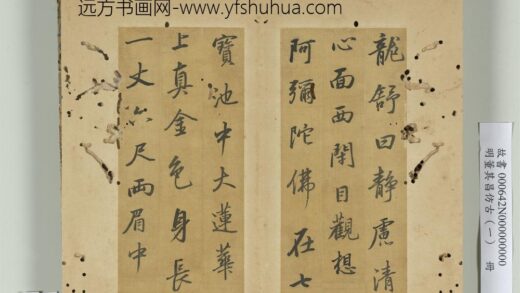 远方书画网-www.yfshuhua.com
龍舒曰靜慮清
心面西閉目觀想
阿彌陀佛在七
寶池中大蓮華
上真金色身長
一丈六尺兩眉中
故書 000642N000000000
明董其昌仿古(一) 冊